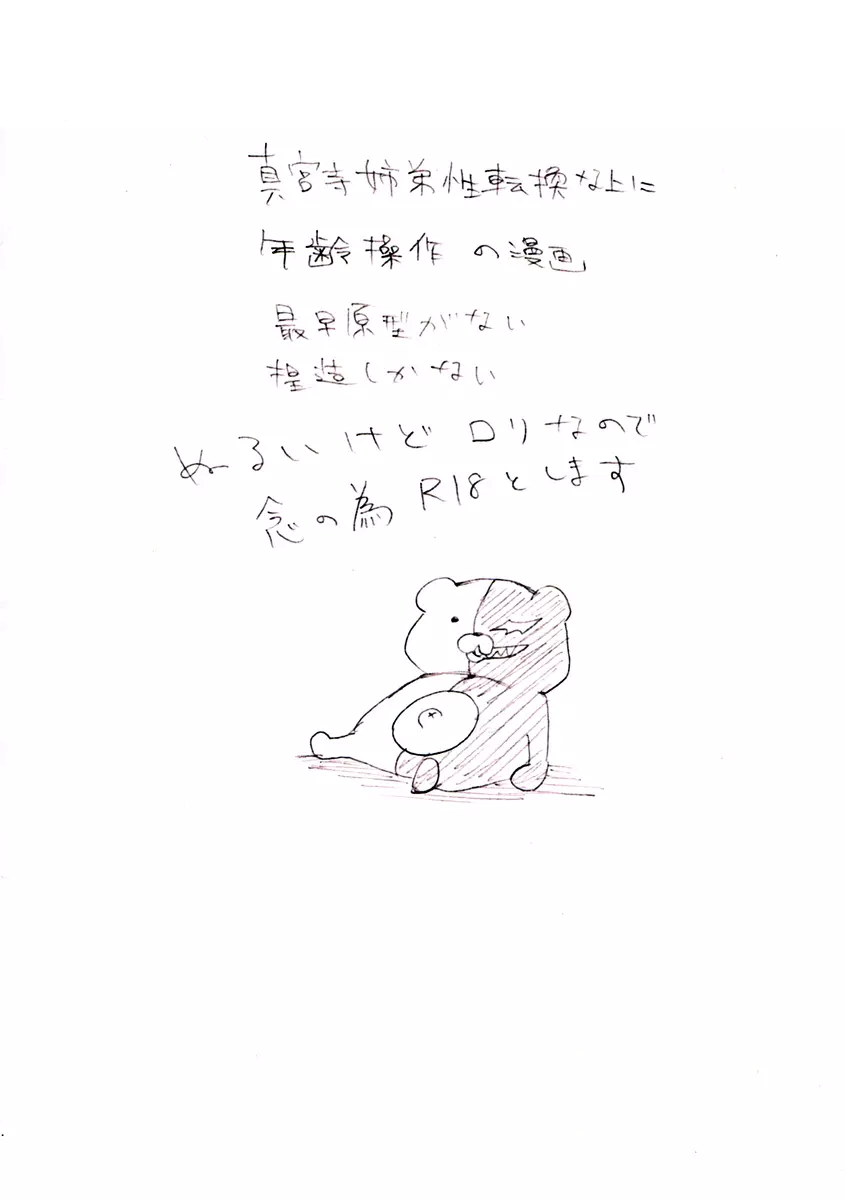 真宮寺姉弟性転換な上に
年齢操作の漫画
最早原型がない
捏造しかない
ぬるいけどロリなので
念の為R18とします